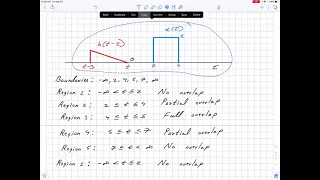 h(t-τ)
x(τ)
t-3 t 0 2 4 τ
Boundaries: -∞, 2, 4, 5, 7, ∞
Region 1: -∞ < t ≤ 2 No overlap
Region 2: 2 ≤ t ≤ 4 Partial overlap
Region 3: 4 ≤ t ≤ 5 Full overlap
Region 4: 5 ≤ t ≤ 7 Partial overlap
Region 5: 7 ≤ t < ∞ No overlap
Region 1: -∞ < t ≤ 2 No overlap